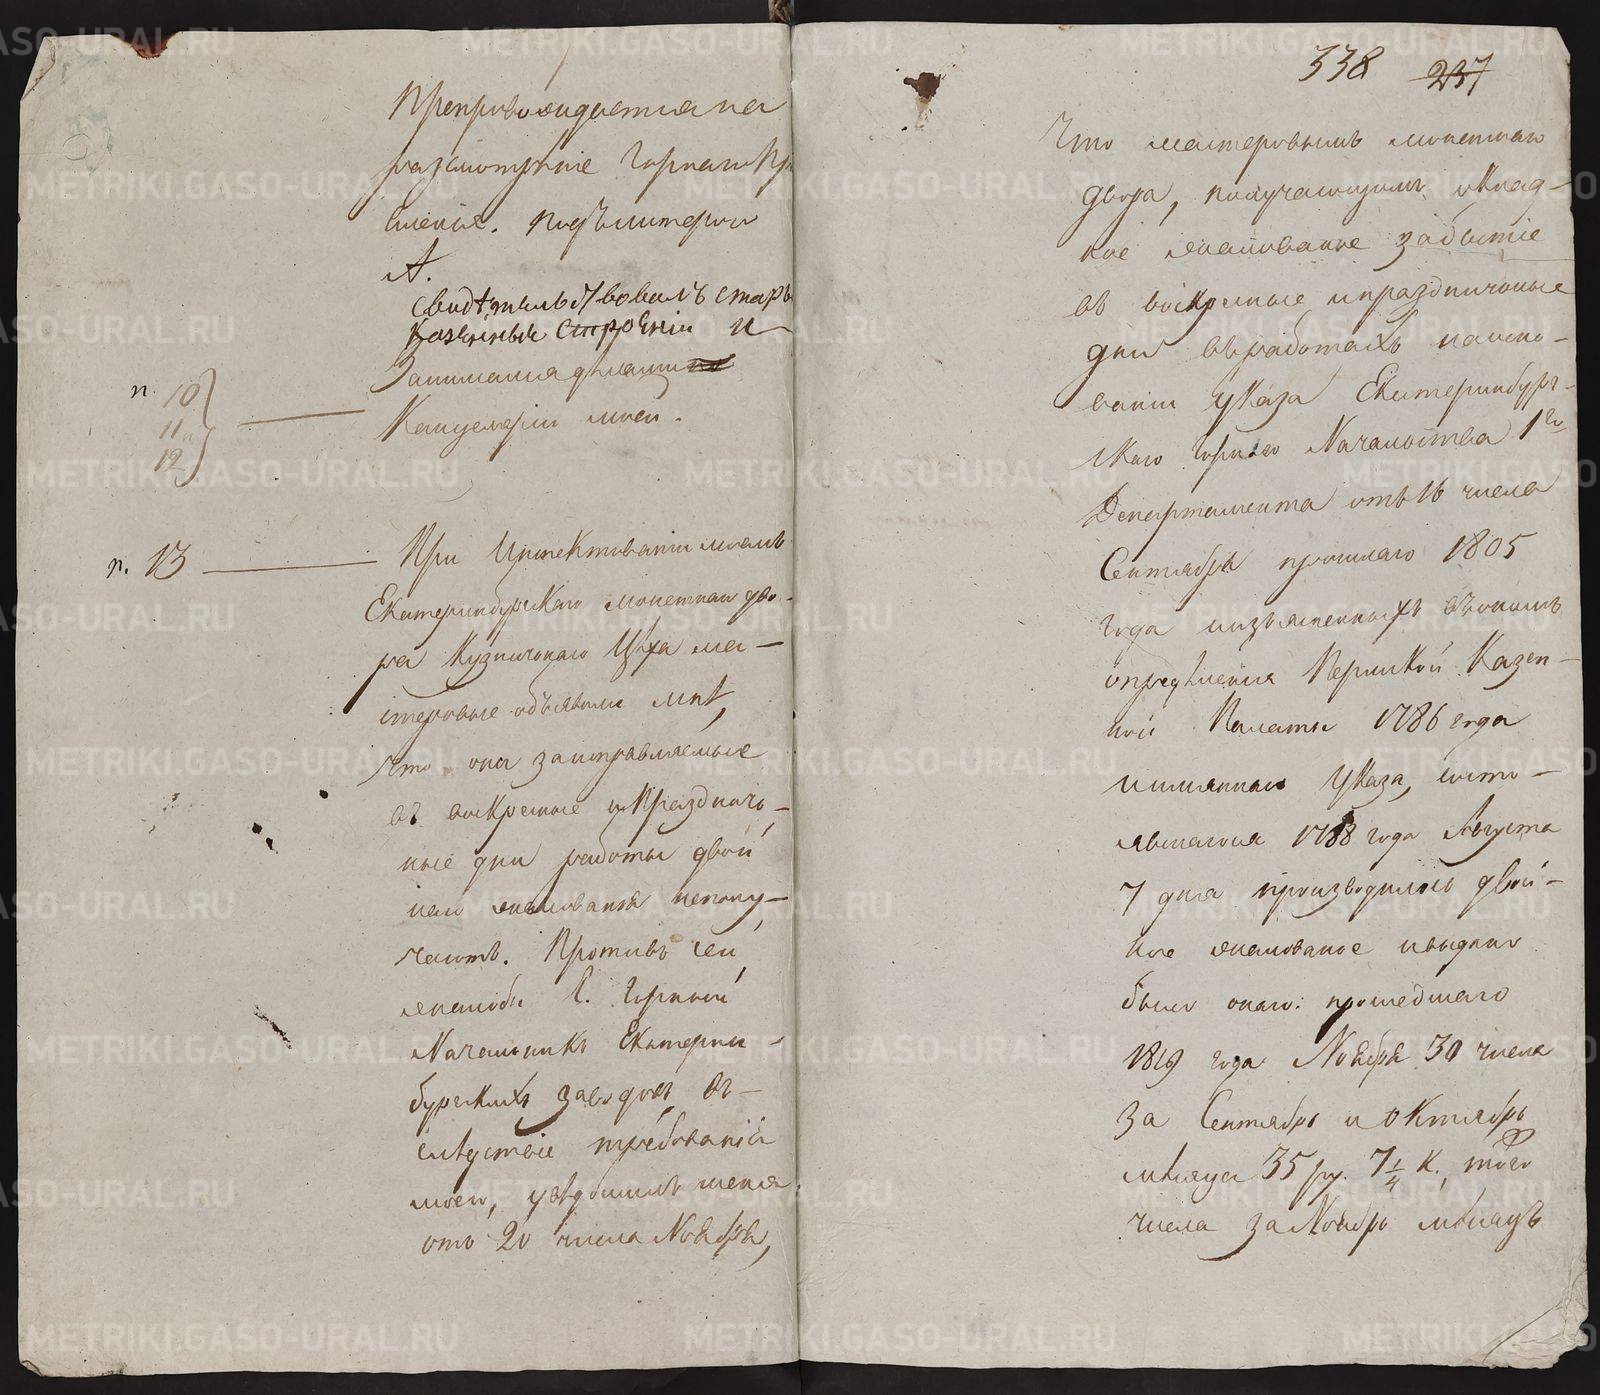 Препровождается на
разсмотрѣніе Горнаго Пр
вленія. подъ литерою
А.
свидѣтельствовалъ старъ
Казенныя строеніи и
Занимался дѣлами
Канцеляріи моей.
п. 10
11 и
12
п. 13
При Инспектованіи моемъ
Екатеринбургскаго монетнаго дво-
ра Кузничнаго Цѣха ма-
стеровые объявили мнѣ,
что они заисправляемые
въ воскресные и Праздничь-
ные дни работы двой
наго жалованья неполу-
чаютъ. Противъ сей
жалобы Г. Горный
Начальникъ Екатерин-
бургскихъ заводовъ, въ-
слѣдствіе требованія
моего, увѣдомилъ меня
отъ 20 числа Ноября,
338 237
Что мастеровымъ монетнаго
двора, получающимъ оклад-
ное жалованье забытіе
въ воскресные и праздничные
дни въ работахъ наосно-
ваніи указа Екатеринбург-
скаго Горнаго Начальства 1го
Департамента отъ 16 числа
Сентября прошлаго 1805
года и изъясненныхъ въономъ
опредѣленія Пермской Казен-
ной Палаты 1786 года
и имяннаго Указа, состо-
явшагося 1788 года Августа
7 дня производилось двой-
ное жалованье и выдано
было онаго: прошедшаго
1819 года Ноября 30 числа
за Сентябрь и октябрь
мѣсяцы 35 ру. 7 1/4 к., того
числа за Ноябрь мѣсяцъ
METRIKI.GASO-URAL.RU